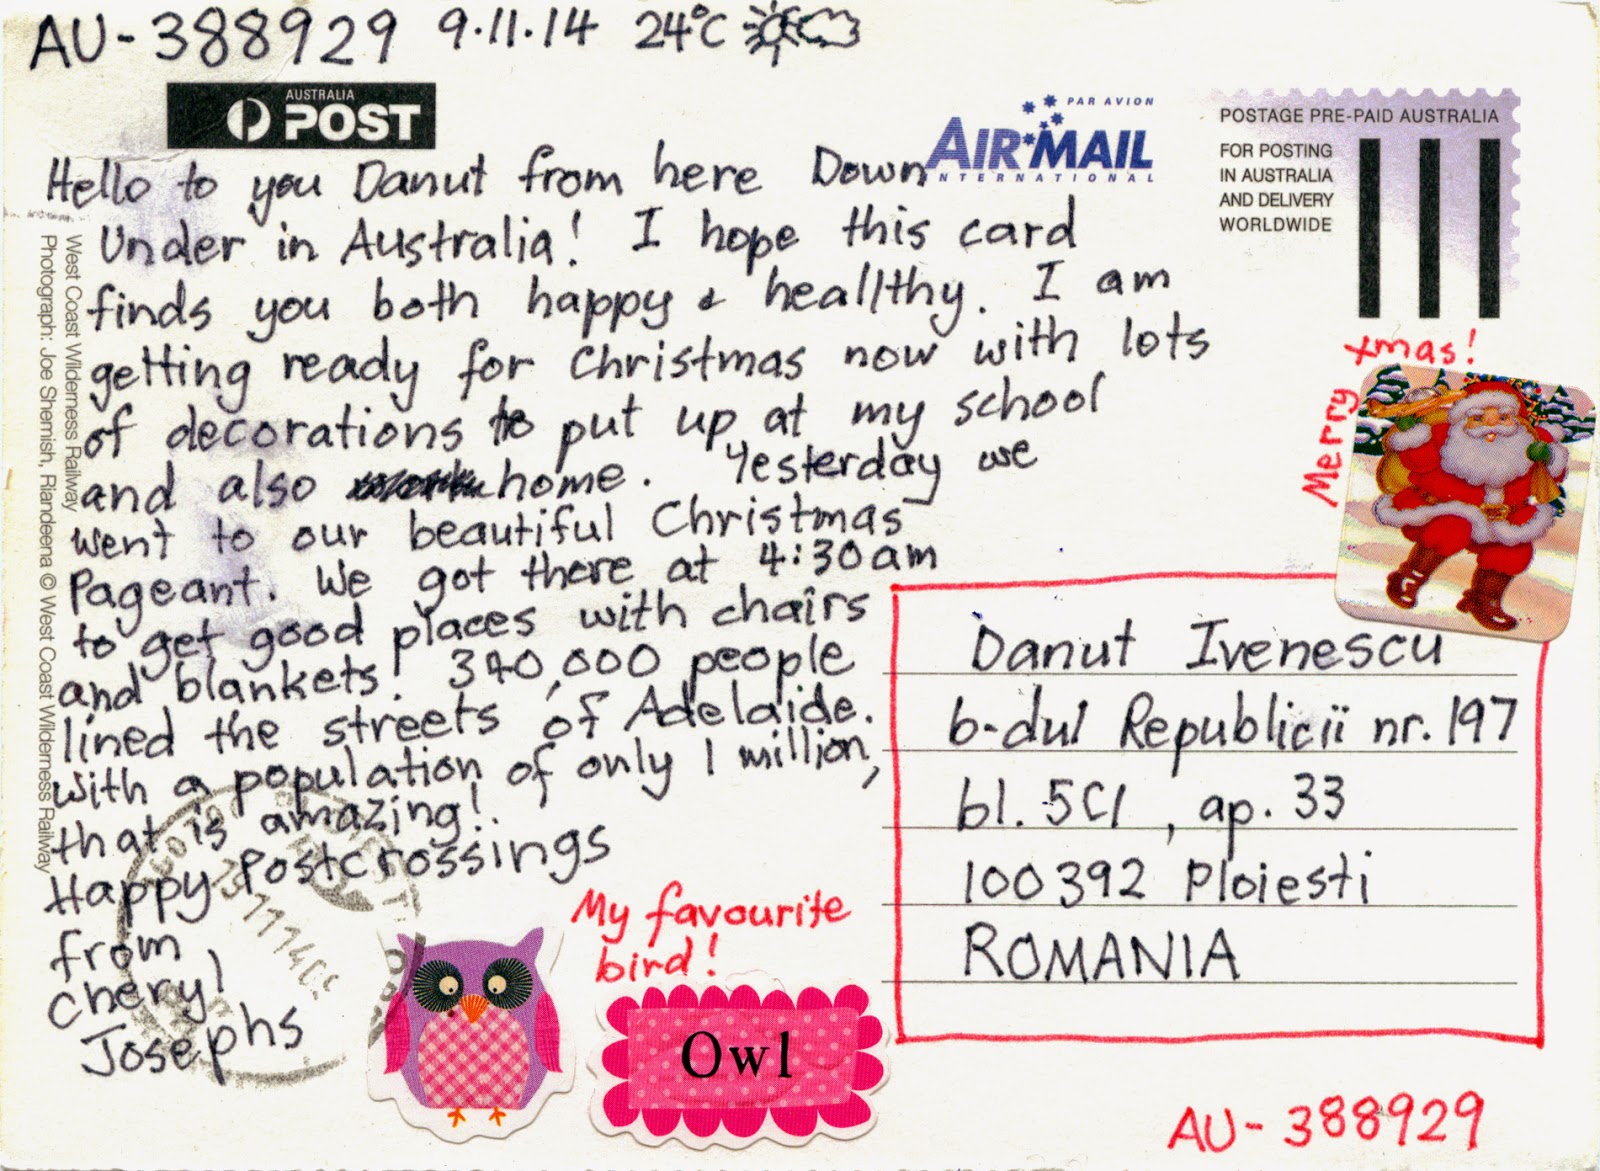 AU-388929 9.11.14 24°C
AUSTRALIA
POST
PAR AVION
AIR MAIL
INTERNATIONAL
POSTAGE PRE-PAID AUSTRALIA
FOR POSTING
IN AUSTRALIA
AND DELIVERY
WORLDWIDE
Hello to you Danut from here Down
Under in Australia! I hope this card
finds you both happy & heallthy. I am
getting ready for Christmas now with lots
of decorations to put up at my school
and also home. Yesterday we
went to our beautiful Christmas
Pageant. We got there at 4:30am
to get good places with chairs
and blankets! 340,000 people
lined the streets of Adelaide.
With a population of only 1 million,
that is amazing!
Happy Postcrossings
from
Cheryl
Josephs
West Coast Wilderness Railway
Photograph: Joe Shemish, Riandeena © West Coast Wilderness Railway
Merry Xmas!
Danut Ivenescu
b-dul Republicii nr. 197
bl. 5C1, ap. 33
100392 Ploiesti
ROMANIA
My favourite
bird!
Owl
AU-388929